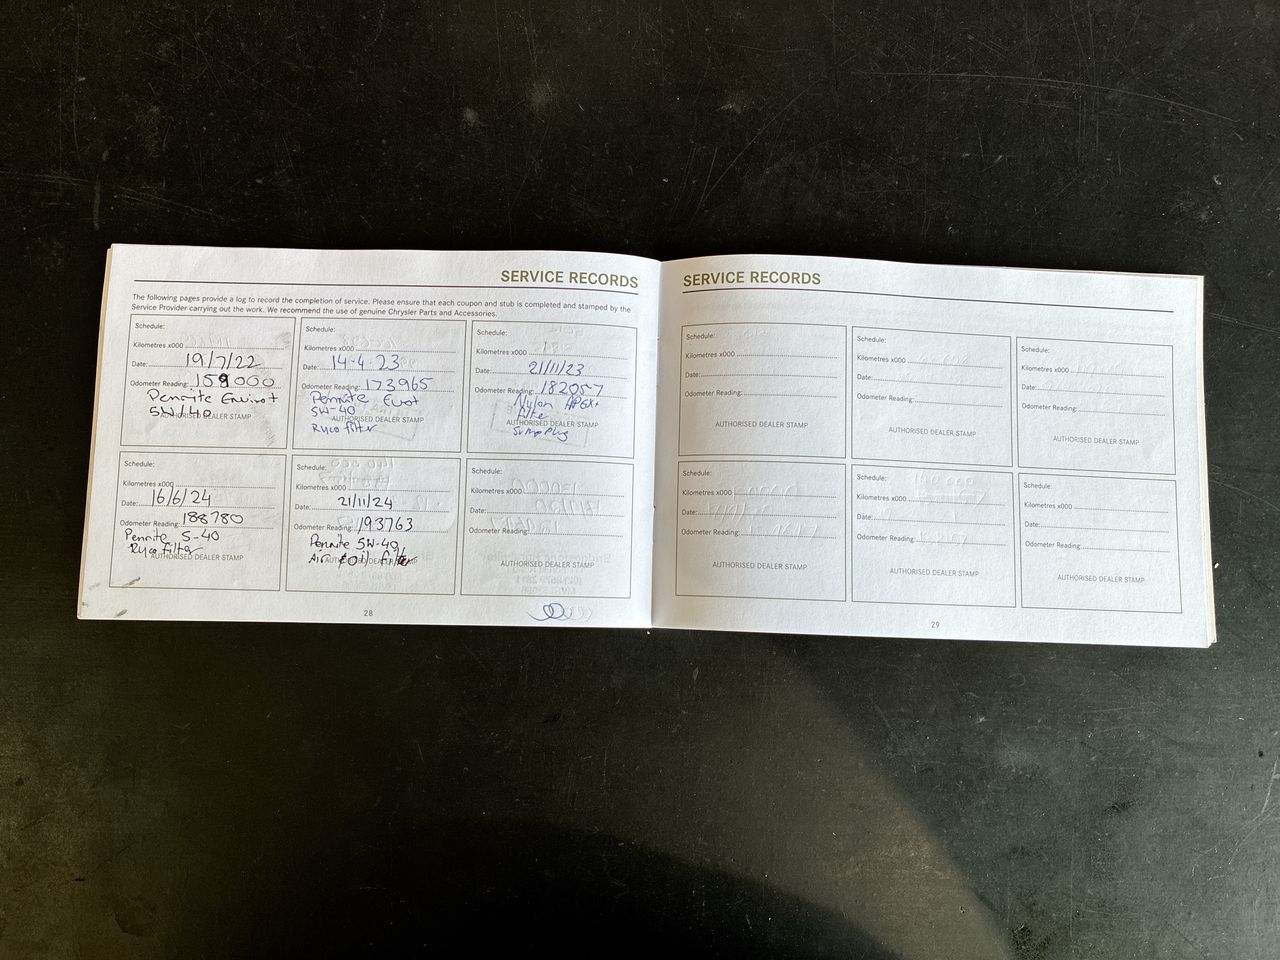 SERVICE RECORDS
The following pages provide a log to record the completion of service. Please ensure that each coupon and stub is completed and stamped by the
Service Provider carrying out the work. We recommend the use of genuine Chrysler Parts and Accessories.
Schedule:
Kilometres x000
Date: 19/7/22
Odometer Reading: 159000
Penrite
5W/40
AUTHORISED DEALER STAMP
Schedule:
Kilometres x000
Date: 14-4-23
Odometer Reading: 173965
Penrite
5W-40
AUTHORISED DEALER STAMP
Ryco filter
Schedule:
Kilometres x000
Date: 21/11/23
Odometer Reading: 182057
Nylon APEX+
filter
AUTHORISED DEALER STAMP
Sump Plug
Schedule:
Kilometres x000
Date: 16/6/24
Odometer Reading: 188780
Penrite 5-40
Ryco filter
AUTHORISED DEALER STAMP
Schedule:
Kilometres x000
Date: 21/11/24
Odometer Reading: 193763
Penrite 5W-40
Air & oil filter
AUTHORISED DEALER STAMP
Schedule:
Kilometres x000
Date:
Odometer Reading:
AUTHORISED DEALER STAMP
28
SERVICE RECORDS
Schedule:
Kilometres x000
Date:
Odometer Reading:
AUTHORISED DEALER STAMP
Schedule:
Kilometres x000
Date:
Odometer Reading:
AUTHORISED DEALER STAMP
Schedule:
Kilometres x000
Date:
Odometer Reading:
AUTHORISED DEALER STAMP
Schedule:
Kilometres x000
Date:
Odometer Reading:
AUTHORISED DEALER STAMP
Schedule:
Kilometres x000
Date:
Odometer Reading:
AUTHORISED DEALER STAMP
Schedule:
Kilometres x000
Date:
Odometer Reading:
AUTHORISED DEALER STAMP
29